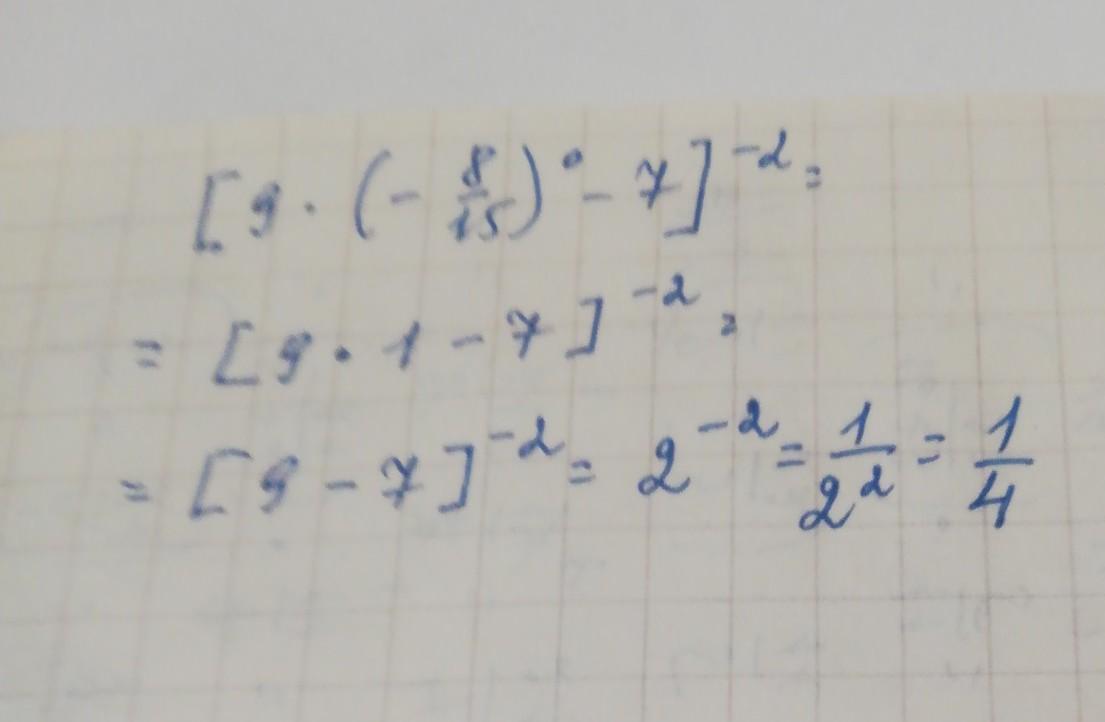 [9 · (- 8/15)⁰ - 7]⁻² =
= [9 · 1 - 7]⁻² =
= [9 - 7]⁻² = 2⁻² = 1/2² = 1/4